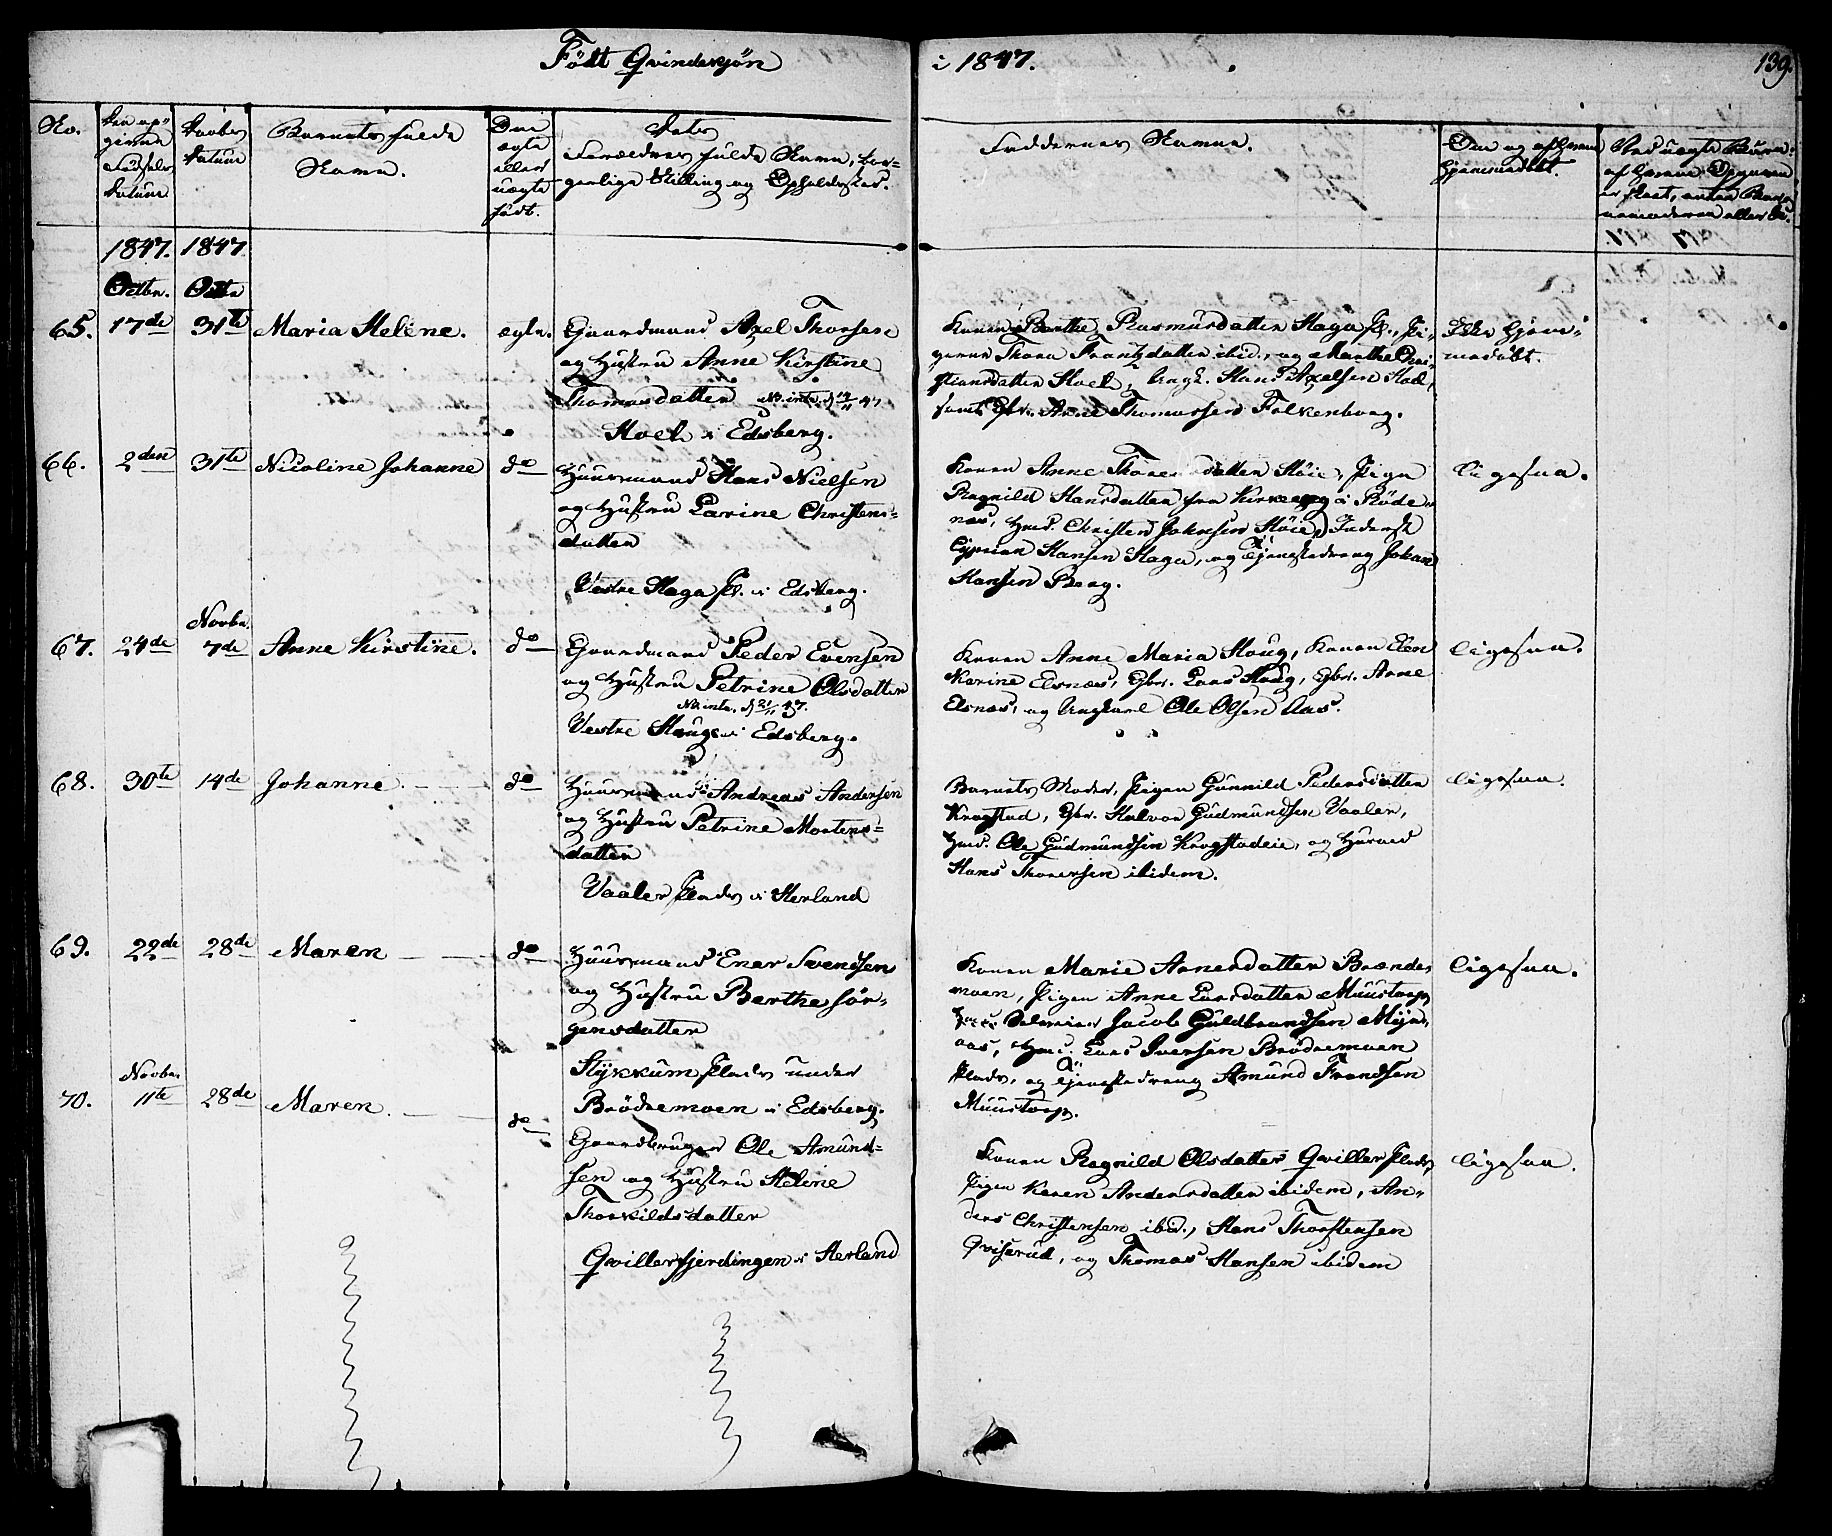 Født Qvindekjøn
i 1847.
139.
No.
Den op-
givne
Fødsels
Datum
Daabs
Datum
Barnets fulde
Navn.
Om
ægte
eller
uægte
født.
Dets
Forældres fulde Navn, bor-
gerlige Stilling og Opholdssted.
Faddernes Navne.
Om og af hvem
hjemmedøbt.
1847. 1847
Octbr. Octbr
65. 17de 31te Maria Helene. ægte. Gaardmand Axel Thorsen
og Hustru Anne Kirstine
Thomasdatter
Hoel i Edsberg.
Konen Berthe Rasmusdatter Haga Pl., Pi-
gerne Thora Frantzdatter ibid., og Marthe Chri-
stiansdatter Hoel, Ungk. Hans Axelsen Hoel,
samt Gbr. Arne Thomassen Falkenborg.
Ikke hjem-
medøbt.
66. 2den 31te Nicoline Johanne do Huusmand Hans Nielsen
og Hustru Larine Christens-
datter
Vestre Haga Pl. i Edsberg.
Konen Anne datter Høie, Pigen
Ragnild Hansdatter fra Kirkeng i Røde-
næs, Hmd. Christen Johnsen Høie, Inderst
Cyprian Hansen Haga, og Tjenestedreng Johan
Hansen Berg.
ligesaa.
Novbr.
67. 24de 7de Anne Kirstine. do Gaardmand Peder Evensen
og Hustru Petrine Olsdatter
Vestre Haug i Edsberg.
Konen Anne Maria Haug, Konen Elen
Karine Elsnæs, Gbr. Lars Haug, Gbr. Arne
Elsnæs, og Ungkarl Ole Olsen Aas.
ligesaa.
68. 30te 14de Johanne do Huusmand Andreas Andersen
og Hustru Petrine Mortens-
datter
Vaaler Plads i Herland
Barnets Moder, Pigen Gunnild Pedersdatter
Krogstad, Gbr. Halvor Gudmundsen Vaaler,
Hmd. Ole Gudmundsen Krogstadeie, og
Hans ibidem.
ligesaa.
69. 22de 28de Maren do Huusmand Ener Svendsen
og Hustru Berthe Jør-
gensdatter
Stykkum Plads under
Brødremoen i Edsberg.
Konen Marie Arnesdatter
moen, Pigen Anne Larsdatter Muustorp
Jacob Guldbrandsen
aas, Hmd. Lars Iversen Brødremoen
Plads, og Tjenestedreng Amund Frandsen
Muustorp.
ligesaa.
Novbr.
70. 11te 28de Maren. do Gaardbruger Ole Amund-
sen og Hustru Heline
Thorkildsdatter
Qvillerfjerdingen i Herland
Konen Ragnild Olsdatter Qviller Plads,
Pigen Karen Andersdatter ibidem, An-
ders Christensen ibid., Hans Thorstensen
Qviserud, og Thomas Hansen ibidem
ligesaa.